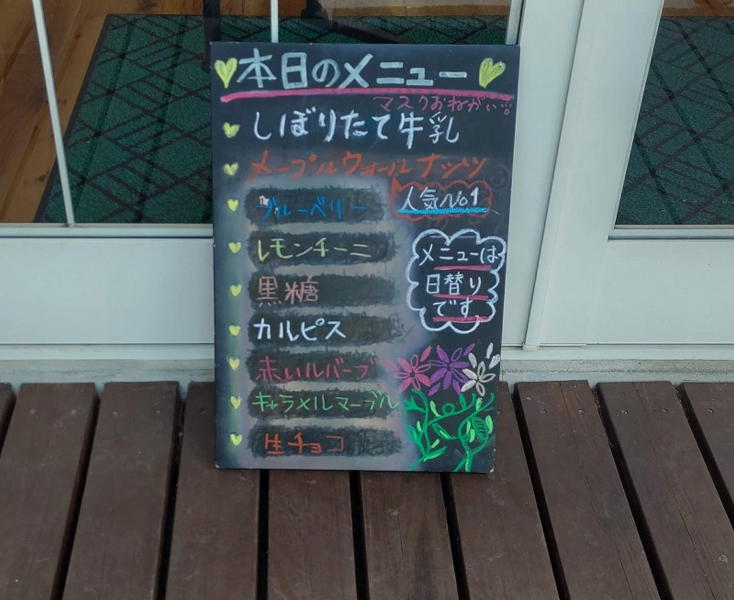 本日のメニュー
マスクおねがい
しぼりたて牛乳
メープルウォールナッツ
ブルーベリー
人気No1
レモンチーニ
メニューは
日替り
です
黒糖
カルピス
赤いルバーブ
キャラメルマーブル
生チョコ